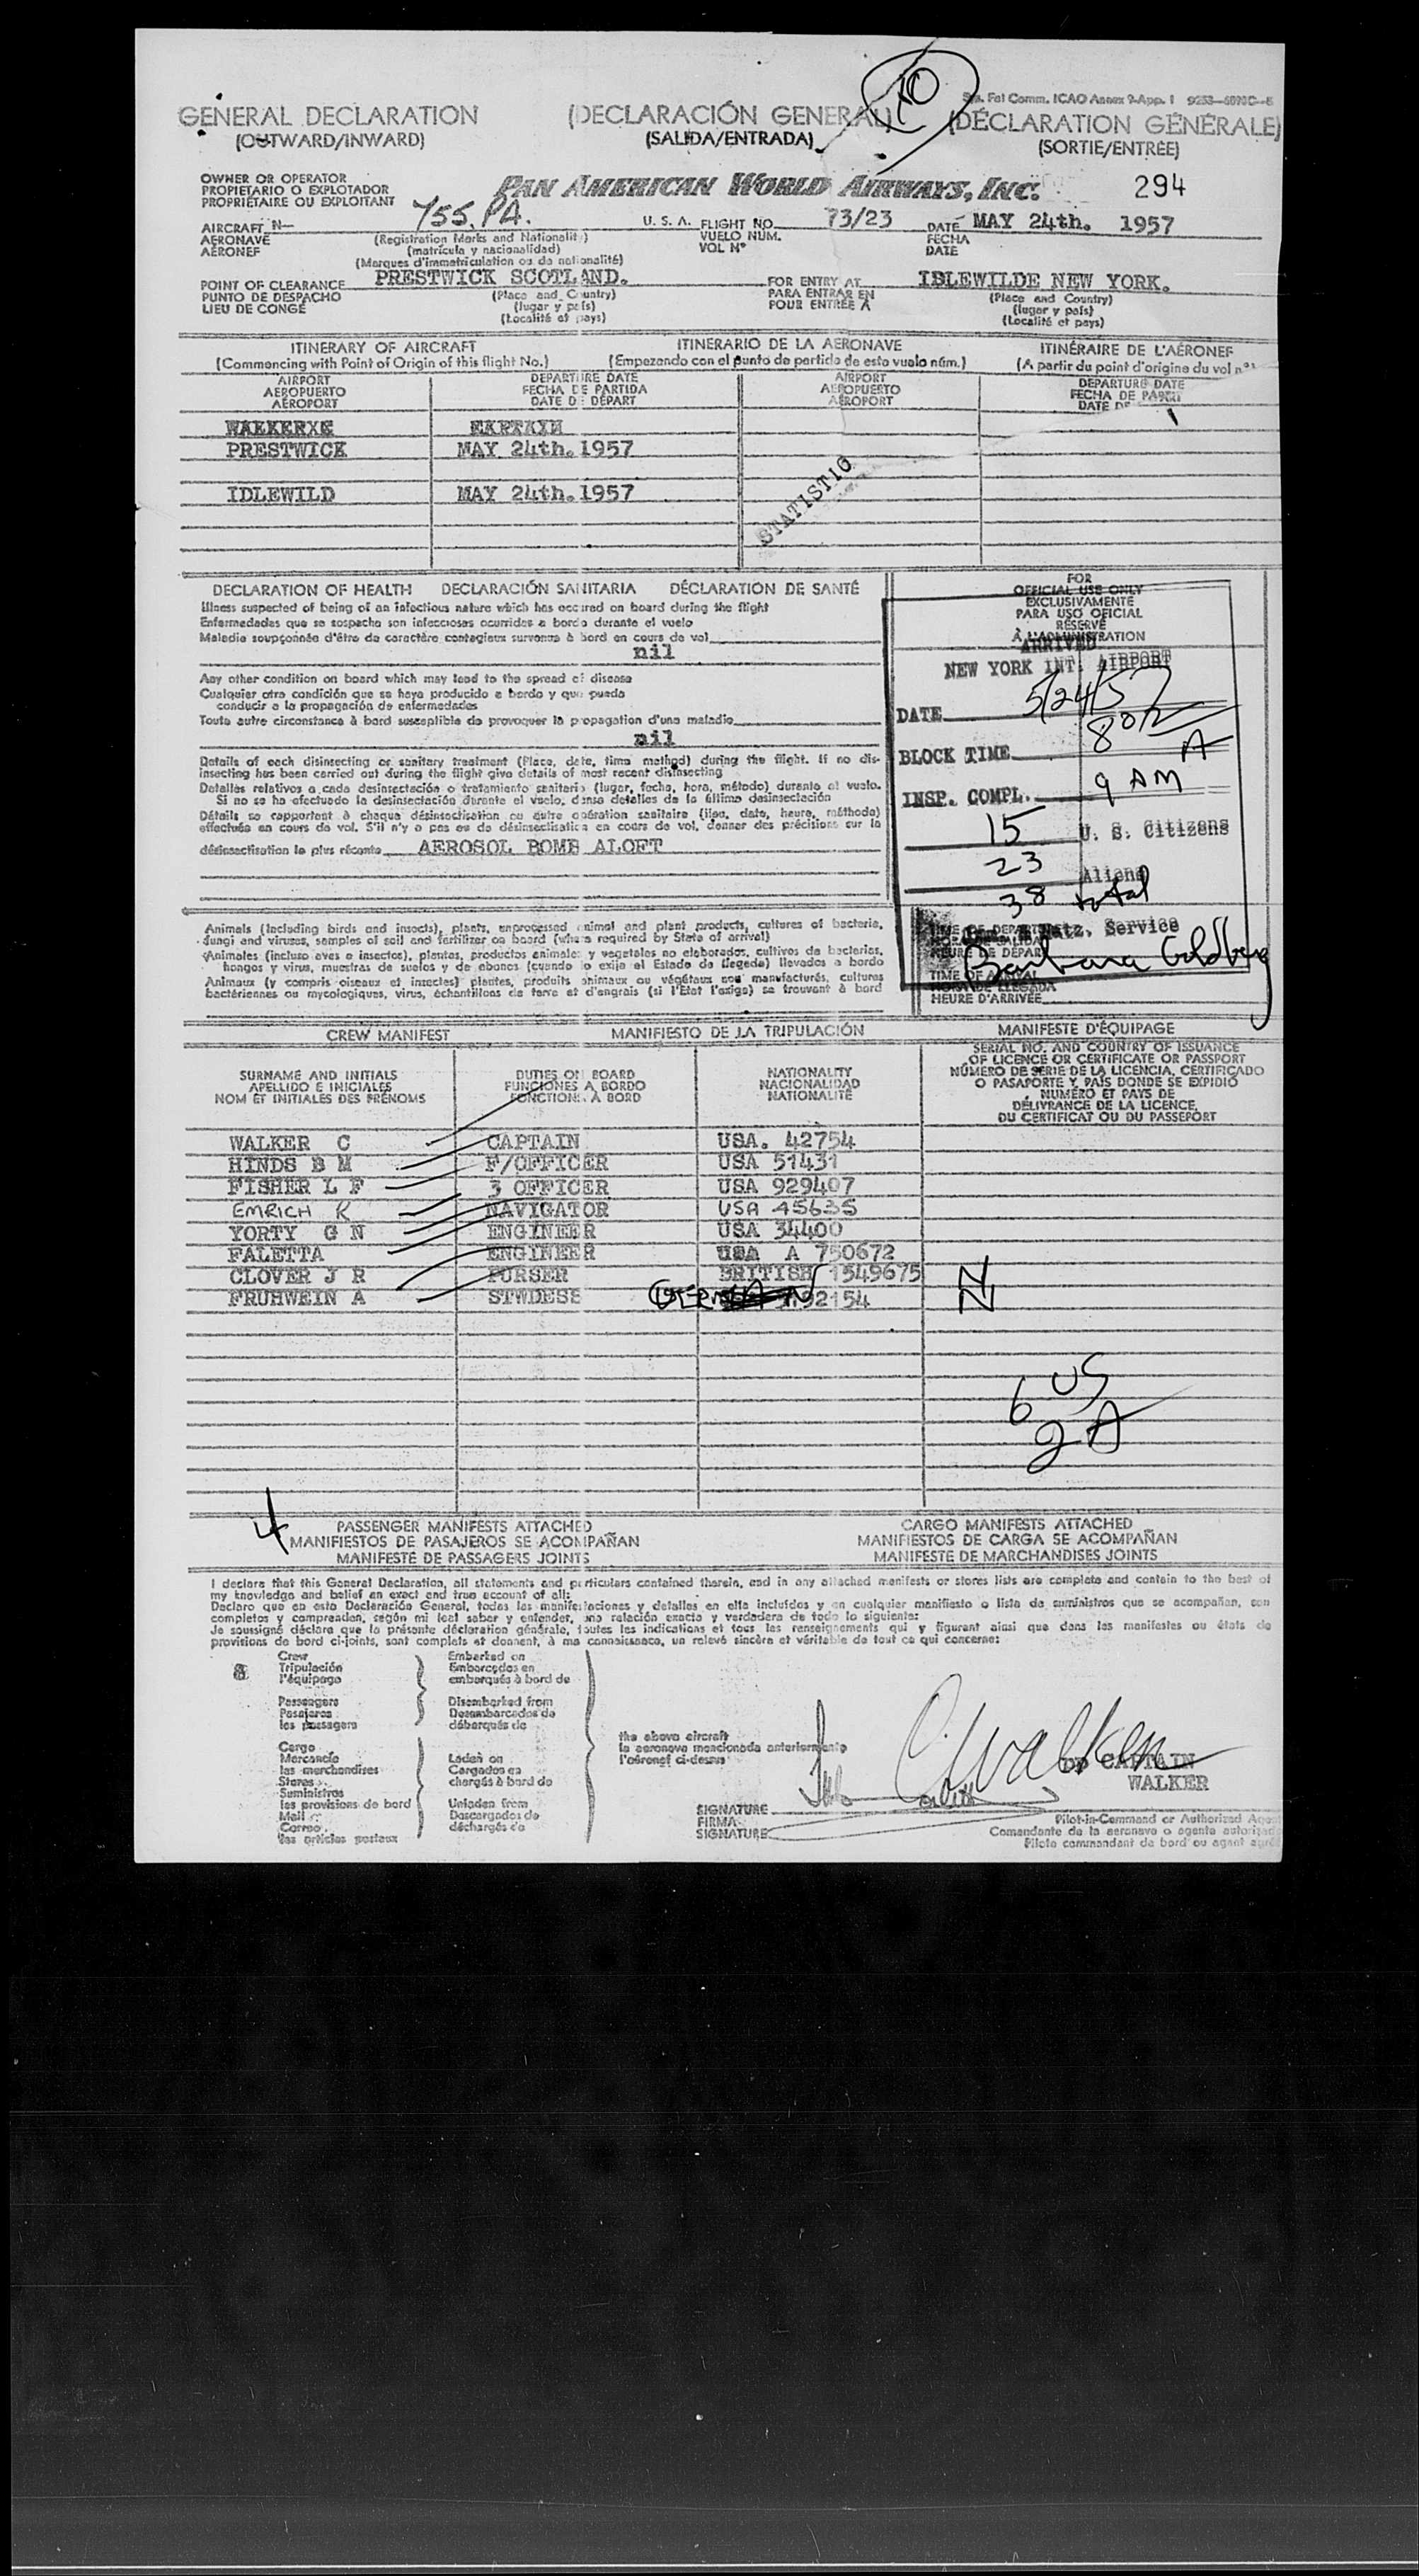 10
Sta. Fal Comm. ICAO Annex 9-App. 1
GENERAL DECLARATION (DECLARACIÓN GENERAL) (DÉCLARATION GÉNÉRALE)
(OUTWARD/INWARD) (SALIDA/ENTRADA) (SORTIE/ENTRÉE)
OWNER OR OPERATOR
PROPIETARIO O EXPLOTADOR
PROPRIÉTAIRE OU EXPLOITANT
PAN AMERICAN WORLD AIRWAYS, INC. 294
AIRCRAFT N— 755. PA. U. S. A. FLIGHT NO. 73/23 DATE MAY 24th. 1957
AERONAVE (Registration Marks and Nationality) VUELO NÚM. FECHA
AÉRONEF (matrícula y nacionalidad) VOL Nº DATE
(Marques d'immatriculation ou de nationalité)
POINT OF CLEARANCE PRESTWICK SCOTLAND. FOR ENTRY AT IBLEWILDE NEW YORK.
PUNTO DE DESPACHO (Place and Country) PARA ENTRAR EN (Place and Country)
LIEU DE CONGÉ (lugar y país) POUR ENTRÉE À (lugar y país)
(Localité et pays) (Localité et pays)
ITINERARY OF AIRCRAFT ITINERARIO DE LA AERONAVE ITINÉRAIRE DE L'AÉRONEF
(Commencing with Point of Origin of this flight No.) (Empezando con el punto de partida de este vuelo núm.) (A partir du point d'origine du vol nº)
AIRPORT DEPARTURE DATE AIRPORT DEPARTURE DATE
AEROPUERTO FECHA DE PARTIDA AEROPUERTO FECHA DE PARTI
AÉROPORT DATE DE DÉPART AÉROPORT DATE DE
PRESTWICK MAY 24th. 1957
IDLEWILD MAY 24th. 1957
STATISTIC
DECLARATION OF HEALTH DECLARACIÓN SANITARIA DÉCLARATION DE SANTÉ
Illness suspected of being of an infectious nature which has occured on board during the flight
Enfermedades que se sospecha son infecciosas ocurridas a bordo durante el vuelo
Maladie soupçonnée d'être de caractère contagieux survenue à bord en cours de vol
nil
Any other condition on board which may lead to the spread of disease
Cualquier otra condición que se haya producido a bordo y que pueda
conducir a la propagación de enfermedades
Toute autre circonstance à bord susceptible de provoquer la propagation d'une maladie
nil
Details of each disinsecting or sanitary treatment (Place, date, time method) during the flight. If no dis-
insecting has been carried out during the flight give details of most recent disinsecting
Detalles relativos a cada desinsectación o tratamiento sanitario (lugar, fecha, hora, método) durante el vuelo.
Si no se ha efectuado la desinsectación durante el vuelo, dense detalles de la última desinsectación
Détails se rapportant à chaque désinsectisation ou autre opération sanitaire (lieu, date, heure, méthode)
effectuée en cours de vol. S'il n'y a pas eu de désinsectisation en cours de vol, donner des précisions sur la
désinsectisation la plus récente AEROSOL BOMB ALOFT
FOR
OFFICIAL USE ONLY
EXCLUSIVAMENTE
PARA USO OFICIAL
RÉSERVÉ
À L'ADMINISTRATION
ARRIVED
NEW YORK INT. AIRPORT
DATE 5/24/57
BLOCK TIME 802 A
INSP. COMPL. 9 AM
15 U. S. Citizens
23 Aliens
38 total
Natz. Service
Barbara Goldberg
HEURE D'ARRIVÉE
Animals (including birds and insects), plants, unprocessed animal and plant products, cultures of bacteria,
fungi and viruses, samples of soil and fertilizer on board (where required by State of arrival)
Animales (incluso aves e insectos), plantas, productos animales y vegetales no elaborados, cultivos de bacterias,
hongos y virus, muestras de suelos y de abonos (cuando lo exija el Estado de llegada) llevados a bordo
Animaux (y compris oiseaux et insectes) plantes, produits animaux ou végétaux non manufacturés, cultures
bactériennes ou mycologiques, virus, échantillons de terre et d'engrais (si l'État l'exige) se trouvant à bord
CREW MANIFEST MANIFIESTO DE LA TRIPULACIÓN MANIFESTE D'ÉQUIPAGE
SURNAME AND INITIALS DUTIES ON BOARD NATIONALITY SERIAL NO. AND COUNTRY OF ISSUANCE
APELLIDO E INICIALES FUNCIONES A BORDO NACIONALIDAD OF LICENCE OR CERTIFICATE OR PASSPORT
NOM ET INITIALES DES PRÉNOMS FONCTIONS À BORD NATIONALITÉ NÚMERO DE SERIE DE LA LICENCIA, CERTIFICADO
O PASAPORTE Y PAÍS DONDE SE EXPIDIÓ
NUMÉRO ET PAYS DE
DÉLIVRANCE DE LA LICENCE,
DU CERTIFICAT OU DU PASSEPORT
WALKER C CAPTAIN USA. 42754
HINDS B M F/OFFICER USA 51431
FISHER L F 3 OFFICER USA 929407
EMRICH K NAVIGATOR USA 45635
YORTY G N ENGINEER USA 34400
FALETTA ENGINEER USA A 750672
CLOVER J R PURSER BRITISH 1549675
FRUHWEIN A STWDESS GERMAN 92154
6 US
2 A
4
PASSENGER MANIFESTS ATTACHED CARGO MANIFESTS ATTACHED
MANIFIESTOS DE PASAJEROS SE ACOMPAÑAN MANIFIESTOS DE CARGA SE ACOMPAÑAN
MANIFESTE DE PASSAGERS JOINTS MANIFESTE DE MARCHANDISES JOINTS
I declare that this General Declaration, all statements and particulars contained therein, and in any attached manifests or stores lists are complete and contain to the best of
my knowledge and belief an exact and true account of all:
Declaro que en esta Declaración General, todas las manifestaciones y detalles en ella incluídos y en cualquier manifiesto o lista de suministros que se acompañan, son
completos y comprenden, según mi leal saber y entender, una relación exacta y verdadera de todo lo siguiente:
Je soussigné déclare que la présente déclaration générale, toutes les indications et tous les renseignements qui y figurent ainsi que dans les manifestes ou états de
provisions de bord ci-joints, sont complets et donnent, à ma connaissance, un relevé sincère et véritable de tout ce qui concerne:
8 Crew Embarked on
Tripulación Embarcados en
l'équipage embarqués à bord de
Passengers Disembarked from
Pasajeros Desembarcados de
les passagers débarqués de
the above aircraft
la aeronave mencionada anteriormente
l'aéronef ci-dessus
Cargo
Mercancía Laden on
les marchandises Cargados en
Stores chargés à bord de
Suministros
les provisions de bord Unladen from
Mail Descargados de
Correo déchargés de
les articles postaux
C. Walker
CAPTAIN
WALKER
SIGNATURE
FIRMA
SIGNATURE
Pilot-in-Command or Authorized Age
Comandante de la aeronave o agente autorizad
Pilote commandant de bord ou agent agré